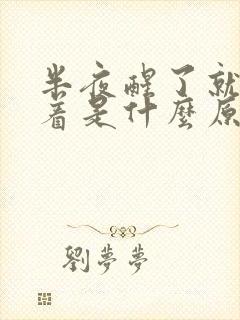 半夜醒了就
着是什麼原
劉夢夢